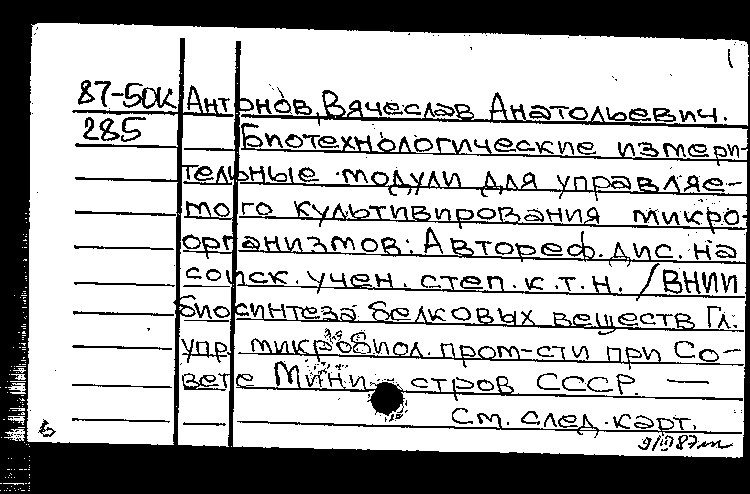 87-50К Антонов, Вячеслав Анатольевич.
285 Биотехнологические измери-
тельные модули для управляе-
мого культивирования микро-
организмов: Автореф. дис. на
соиск. учен. степ. к.т.н. /ВНИИ
биосинтеза белковых веществ Гл.
упр. микробиол. пром-сти при Со-
вете Мини стров СССР. —
См. след. карт.